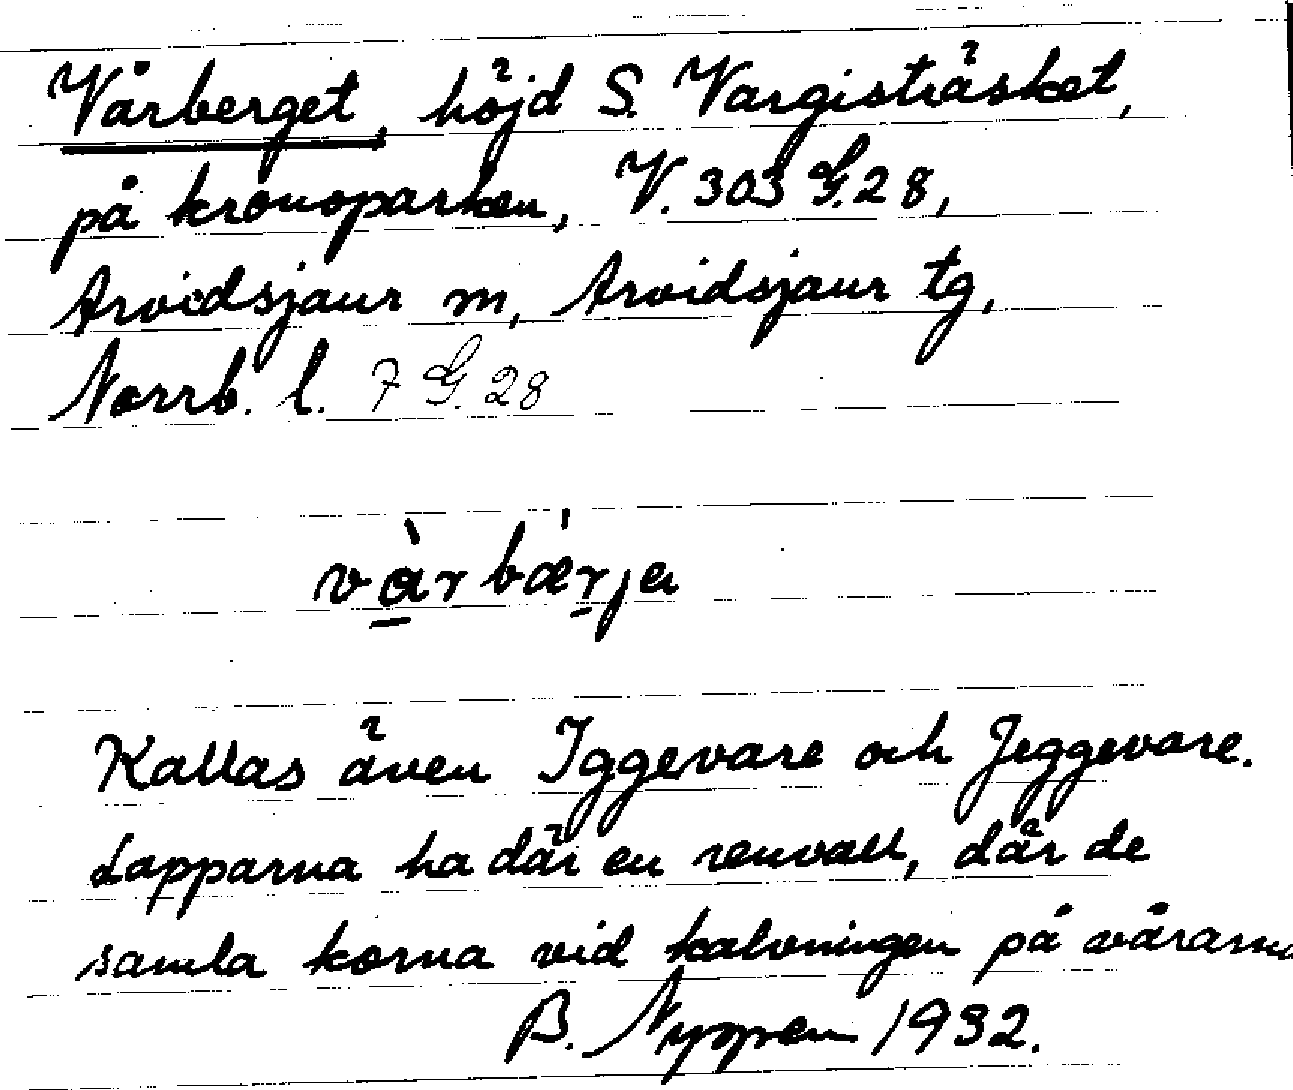 Vårberget, höjd S. Vargisträsket,
på kronoparken, V. 303 G. 28,
Arvidsjaur m, Arvidsjaur tg,
Norrb. l. 7 G. 28
vàrbær̲ja
Kallas även Iggevare och Jeggevare.
Lapparna ha där en renvall, där de
samla korna vid kalvningen på vårarna
B. Nyppen 1932.